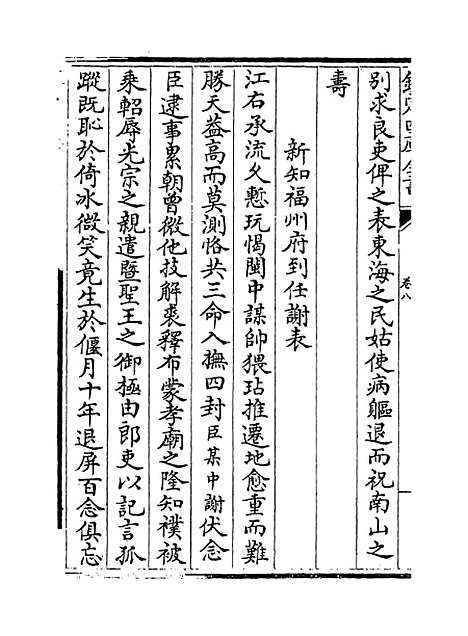 欽定四庫全書
卷八
別求良吏俾之表東海之民姑使病軀退而祝南山之
壽
新知福州府到任謝表
江右承流久慙玩愒閩中謀帥猥玷推遷地愈重而難
勝天益高而莫測恪共三命入撫四封臣某中謝伏念
臣逮事累朝曾微他技解褐釋布蒙孝廟之隆知襆被
乘軺辱光宗之親遣暨聖王之御極由郎吏以記言孤
蹤既恥於倚冰微笑竟生於偃月十年退屏百念俱忘